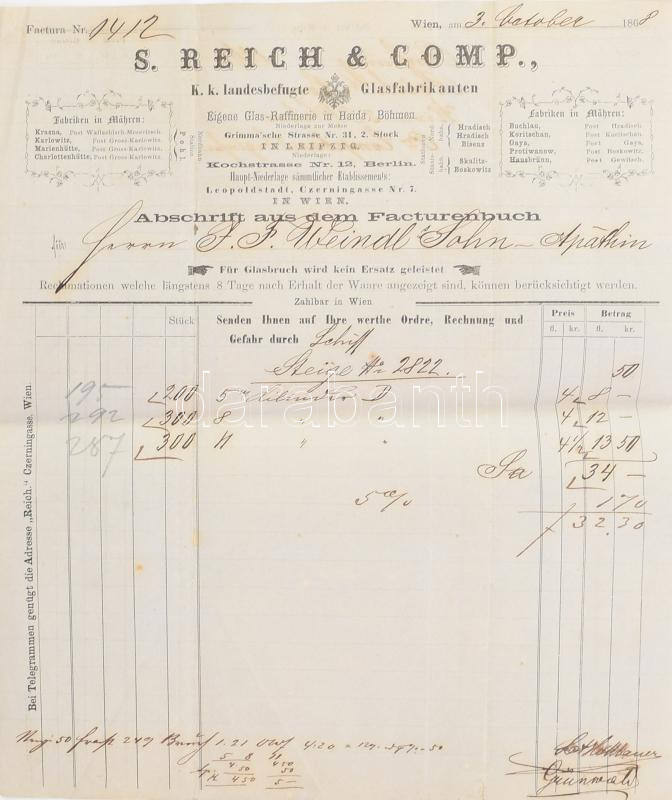 Factura Nr. 1412
Wien, am 3. October 1868
S. REICH & COMP.,
K. k. landesbefugte Glasfabrikanten
Eigene Glas-Raffinerie in Haida, Böhmen.
Niederlage zur Messe
Grimma'sche Strasse Nr. 31, 2. Stock
IN LEIPZIG.
Niederlage:
Kochstrasse Nr. 12, Berlin.
Haupt-Niederlage sämmtlicher Etablissements:
Leopoldstadt, Czerningasse Nr. 7,
IN WIEN.
Fabriken in Mähren:
Krasna, Post Wallachisch-Meseritsch.
Karlowitz, Post Gross-Karlowitz.
Marienhütte, Post Gross-Karlowitz.
Charlottenhütte, Post Gross-Karlowitz.
Pohl
Fabriken in Mähren:
Buchlau, Post Hradisch.
Koritschan, Post Koritschan.
Gaya, Post Gaya.
Protiwanow, Post Boskowitz.
Hausbrünn, Post Gewitsch.
Hradisch
Hradisch
Bisenz
Skalitz-
Boskowitz
Abschrift aus dem Facturenbuch
für Herrn F. F. Weindl Sohn – Apáthin
Für Glasbruch wird kein Ersatz geleistet
Reclamationen welche längstens 8 Tage nach Erhalt der Waare angezeigt sind, können berücksichtigt werden.
Zahlbar in Wien.
Stück
Senden Ihnen auf Ihre werthe Ordre, Rechnung und
Gefahr durch Schiff
Preis Betrag
fl. kr. fl. kr.
Steige No 2822. 50
195 200 5 Cilinder D 4 8 –
292 300 8 " " 4 12 –
287 300 11 " " 4½ 13 50
Sa 34 –
5 % 1 70
32.30
Bei Telegrammen genügt die Adresse „Reich." Czerningasse, Wien
5 8 11
4.50 4 50
Grünwald
darabanth